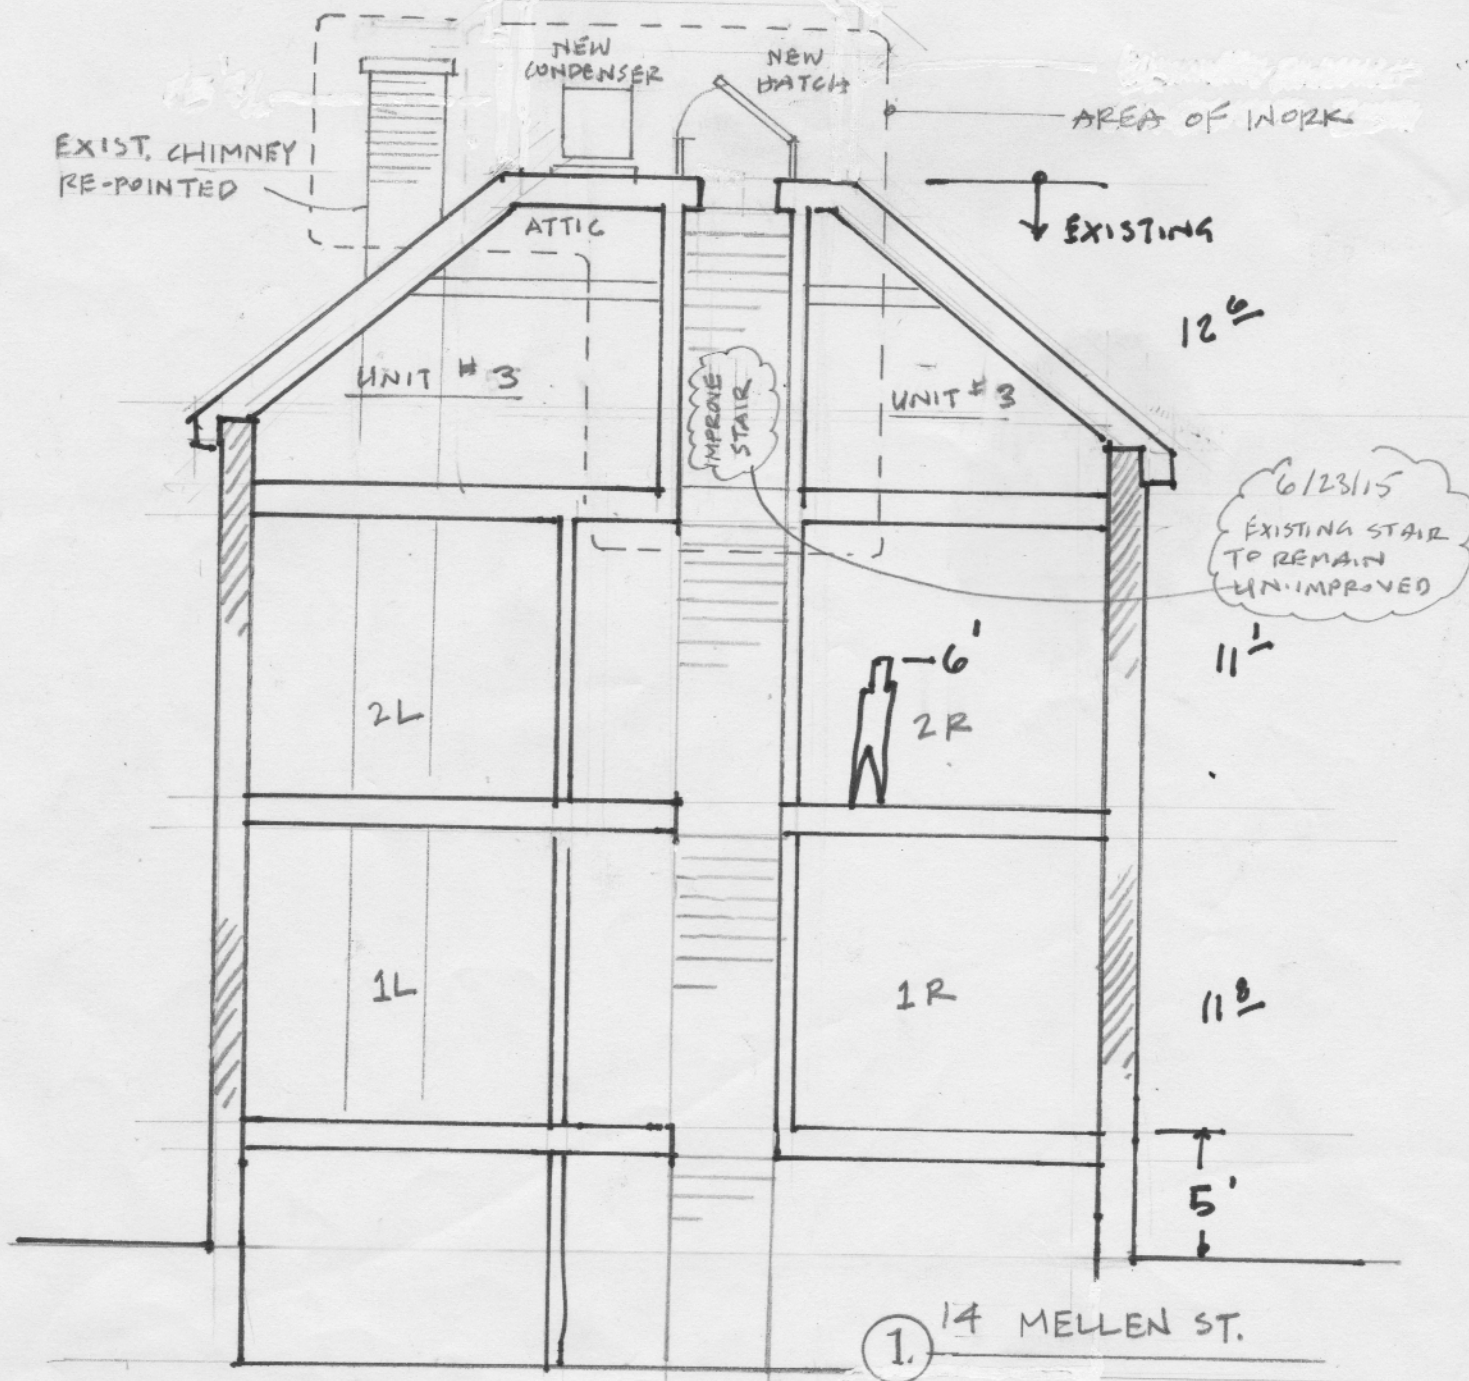 NEW
CONDENSER
NEW
HATCH
AREA OF WORK
EXIST. CHIMNEY
RE-POINTED
EXISTING
ATTIC
12 6
UNIT # 3
IMPROVE
STAIR
UNIT # 3
6/23/15
EXISTING STAIR
TO REMAIN
UN-IMPROVED
11 1
6'
2L
2R
1L
1R
11 8
5'
1. 14 MELLEN ST.